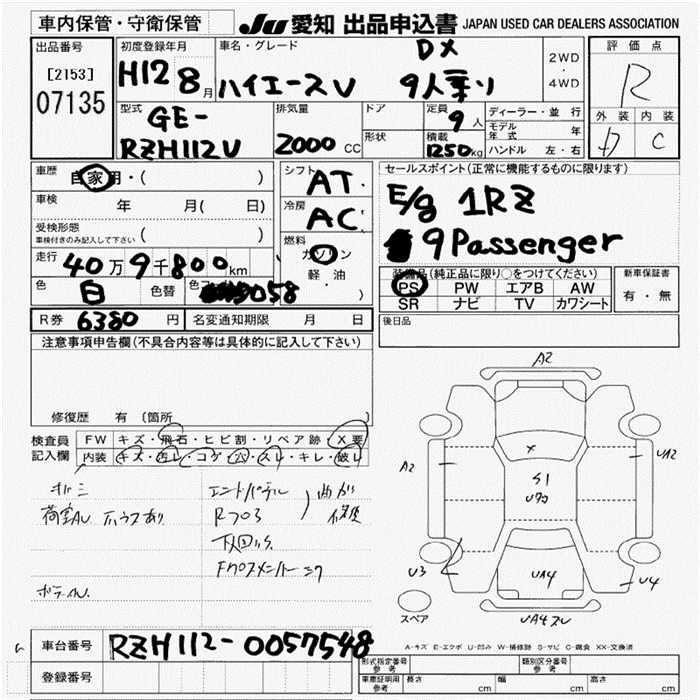 車内保管・守衛保管
JU 愛知 出品申込書 JAPAN USED CAR DEALERS ASSOCIATION
出品番号
[2153]
07135
初度登録年月
H12 8月
車名・グレード
DX
ハイエースV 9人乗り
2WD
・
4WD
評価点
R
外装 内装
C
型式
GE-
RZH112V
排気量
2000 CC
ドア
形状
定員
9人
積載
1250kg
ディーラー・並行
モデル年式 年
ハンドル 左・右
車歴
自家用・( )
車検 年 月( 日)
受検形態
車検付きのみ記入して下さい ( )
走行
40万9千800km
色
白
色替
色コ
058
シフト
AT
冷房
AC
燃料
ガソリン
軽・油
セールスポイント(正常に機能するものに限ります)
E/g 1RZ
9Passenger
装備品(純正品に限り○をつけてください)
PS PW エアB AW
SR ナビ TV カワシート
新車保証書
有・無
R券 6380円
名変通知期限 月 日
後日品
注意事項申告欄(不具合内容等は具体的に記入して下さい)
修復歴 有 (箇所 )
検査員
記入欄
FW キズ・飛石・ヒビ割・リペア跡・X要
内装 キズ・汚レ・コゲ・穴・スレ・キレ・破レ
荷室AU
R703
A2
A2
UA2
X
S1
U70
U3
UA4
U4
スペア
A-キズ E-エクボ U-凹み W-補修跡 S-サビ C-腐食 XX-交換済
車台番号 RZH112-0057548
登録番号
形式指定番号
参考
類別区分番号
参考
車庫証明用
参考
長さ cm 幅 cm 高さ cm